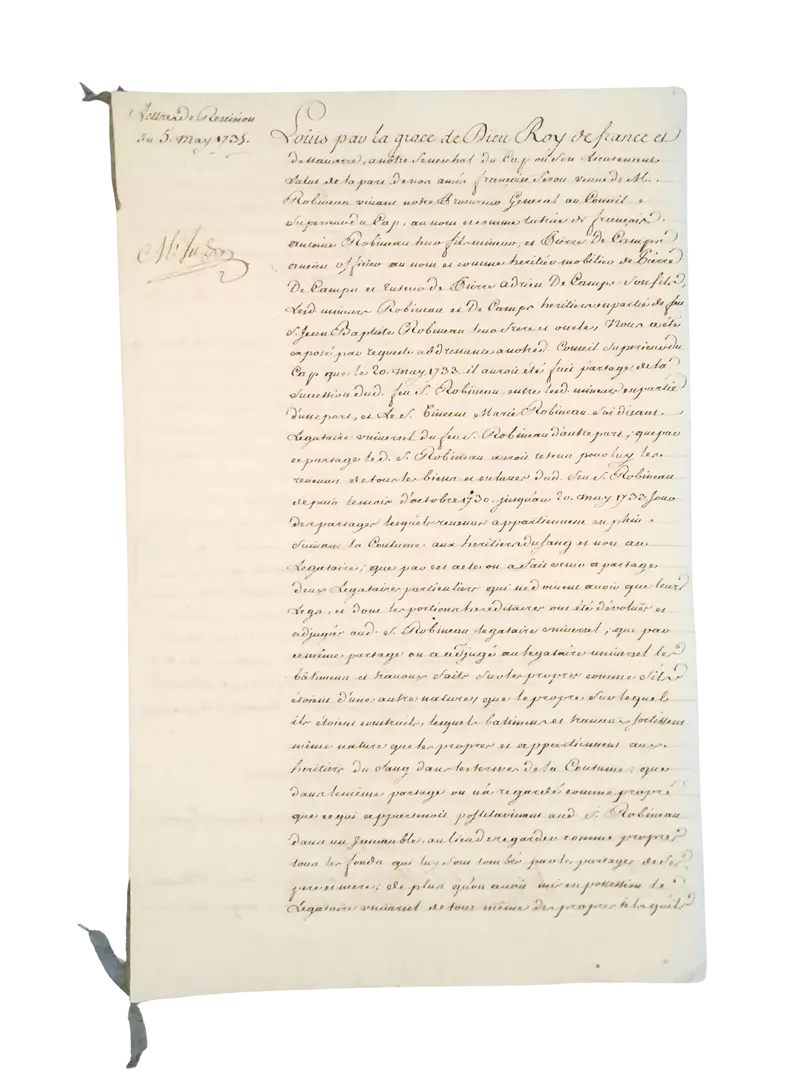 Lettres de Rescision
du 5. may 1735.
Louis par la grace de Dieu Roy de france et
de navarre, a notre Senechal du Cap ou son Lieutenant
Salut de la part de nos amés françoise Sirou veuve de M.
Robineau vivant notre Procureur General au Conseil
Superieur du Cap, au nom et comme tutrice de françois
antoine Robineau leur fils mineur, et Pierre De Camps
ancien officier au nom et comme heritier mobilier de Pierre
De Camps et tuteur de Pierre adrien De Camps son fils,
Lesd. mineurs Robineau et De Camps heritiers en partie de feu
S. Jean Baptiste Robineau leur frere et oncle, Nous a été
exposé par requete addressante a notred. Conseil Superieur du
Cap que le 20. may 1733. il auroit été fait partage de la
Succession dud. feu S. Robineau, entre lesd. mineurs en partie
d'une part, et Le S. Vincent Marie Robineau soi disant
Legataire universel du feu S. Robineau d'autre part; que par
ce partage led. S. Robineau auroit retenu pour luy les
revenus de tous les biens et esclaves dud. feu S. Robineau
depuis le mois d'octobre 1730. jusqu'au 20. may 1733. jour
des partages lesquels revenus appartiennent en plein
Suivant la Coutume aux heritiers du sang et non au
Legataire; que par cet acte on a fait venir a partage
deux Legataires particuliers qui ne doivent avoir que leurs
Legs, et dont les portions hereditaires ont été dévolues et
adjugés aud. S. Robineau legataire universel; que par
ce même partage on a adjugé au legataire universel les
bâtimens et travaux faits sur les propres comme s'ils
étoient d'une autre nature, que le propre sur lequel
ils étoient construits, lesquels batimens et travaux sortissent
même nature que les propres et appartiennent aux
heritiers du Sang dans les termes de la Coutume; que
dans le même partage on n'a regardé comme propre
que ce qui appartenoit aud. S. Robineau
dans un Immeuble, au lieu de regarder comme propre
tous les fonds qui luy sont tombés par les partages de ses
pere et mere; de plus qu'on auroit mis en possession le
Legataire universel de tous même des propres lesquels